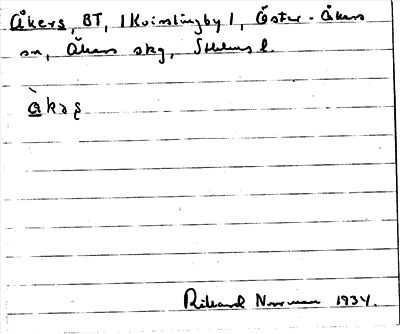 Åkers, BT, (Kvimslingby), Öster-Åkers
sn, Åkers skg, Sthlms l.
åkəʂ
Rikard Norrman 1934.